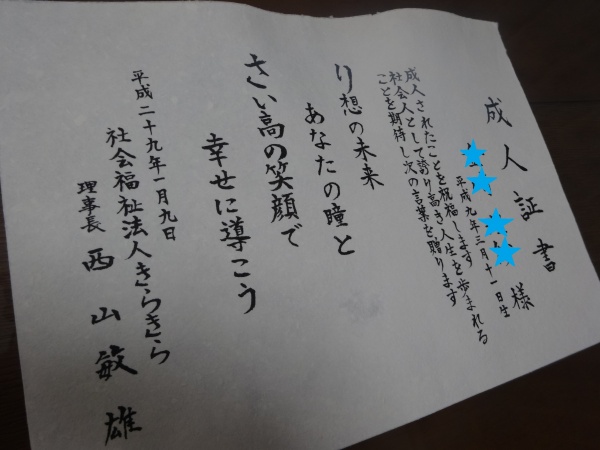 成人証書
様
平成九年三月十一日生
成人されたことを祝福します
社会人として誇り高き人生を歩まれる
ことを期待し次の言葉を贈ります
り想の未来
あなたの瞳と
さい高の笑顔で
幸せに導こう
平成二十九年一月九日
社会福祉法人きらきら
理事長 西山敏雄